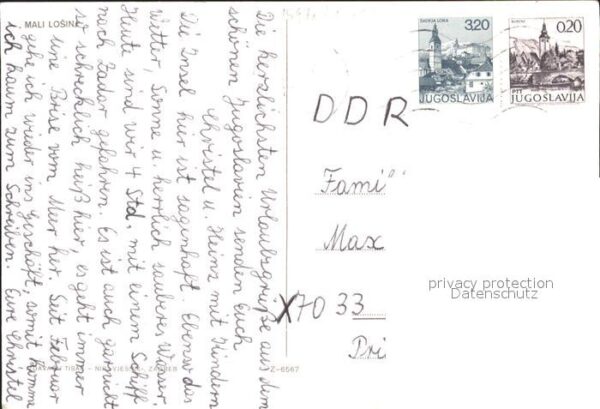 MALI LOŠINJ
Die herzlichsten Urlaubsgrüße aus dem
schönen Jugoslawien senden Euch
Christel u. Heinz mit Kindern
Die Insel hier ist sagenhaft. Ebenso das
Wetter, Sonne u. herrlich sauberes Wasser.
Heute sind wir 4 Std. mit einem Schiff
nach Zadar gefahren. Es ist auch gar nicht
so schrecklich heiß hier, es geht immer
eine Brise vom Meer her. Seit Februar
gehe ich wieder ins Geschäft, somit komme
ich kaum zum Schreiben Eure Christel
ŠKOFJA LOKA
3.20
JUGOSLAVIJA
BOHINJ
0.20
PTT
JUGOSLAVIJA
DDR
Fami
Max
X7033
Pri
privacy protection
Datenschutz
TISAK - VJESNIK, ZAGREB
Z-6567